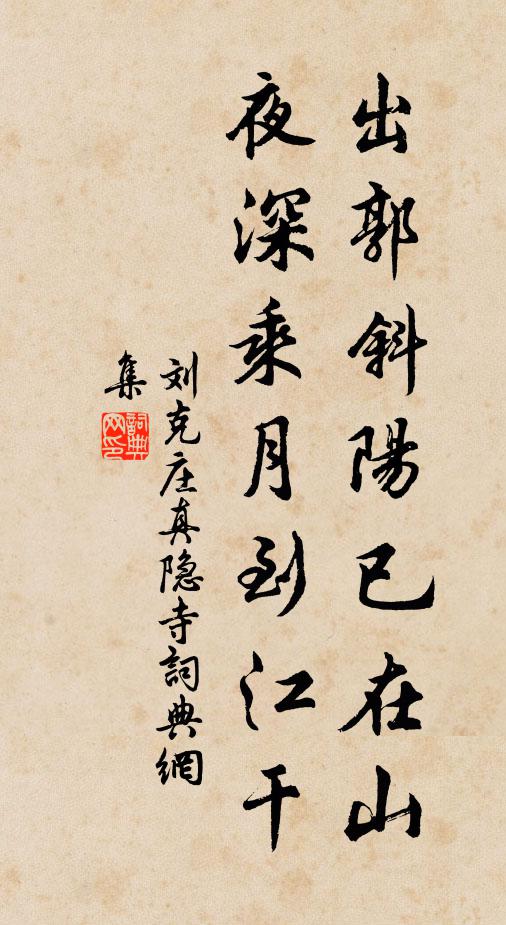 出郭斜陽已在山
夜深乘月到江干
刘克庄真隐寺詞典網
集
詞典
网印